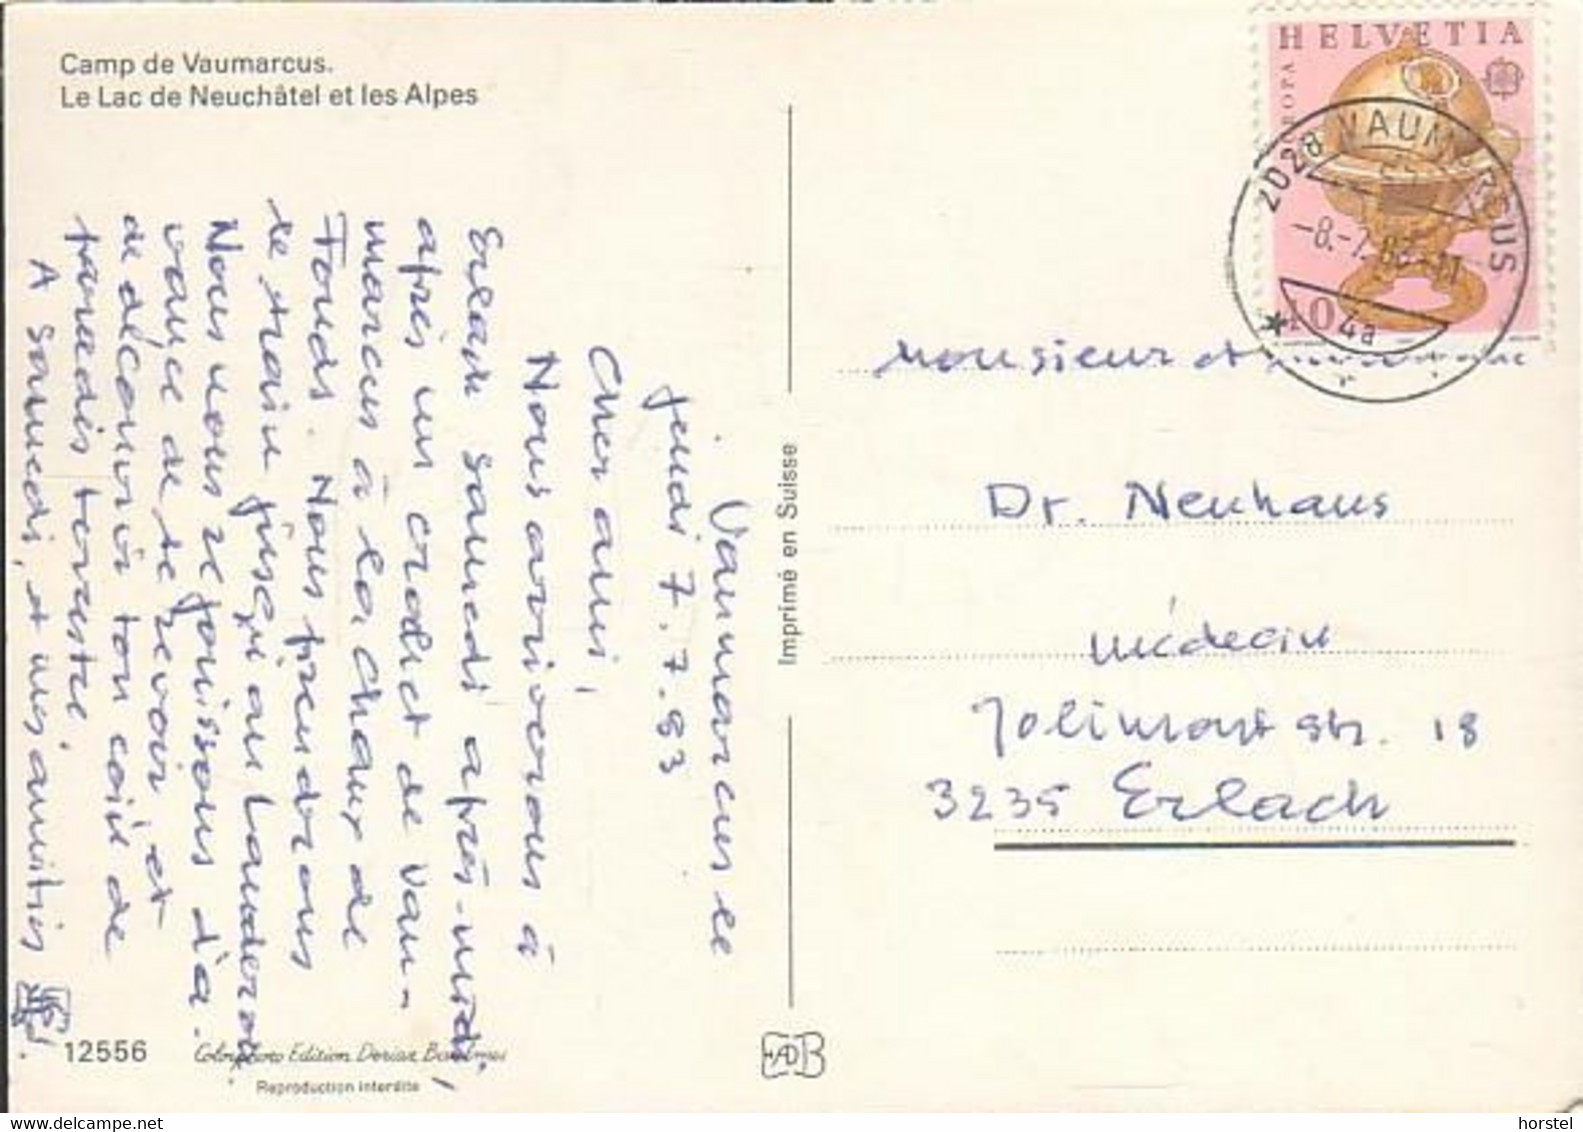 Camp de Vaumarcus.
Le Lac de Neuchâtel et les Alpes
Vaumarcus le
jeudi 7.7.83
Cher ami,
Nous arriverons à
Erlach samedi après-midi,
après un crochet de Vau-
marcus à la Chaux de
Fonds. Nous prendrons
le train jusqu'au Landeron.
Nous nous réjouissons d'a-
vance de te revoir, et
de découvrir ton coin de
paradis terrestre.
A samedi, et mes amitiés
12556
Colorphoto Edition
Reproduction interdite
Imprimé en Suisse
HELVETIA
EUROPA
40
2028 VAUMARCUS
-8.-7.83-11
4a
Monsieur et
Dr. Neuhaus
médecin
Jolimontstr. 18
3235 Erlach
horstel
www.delcampe.net